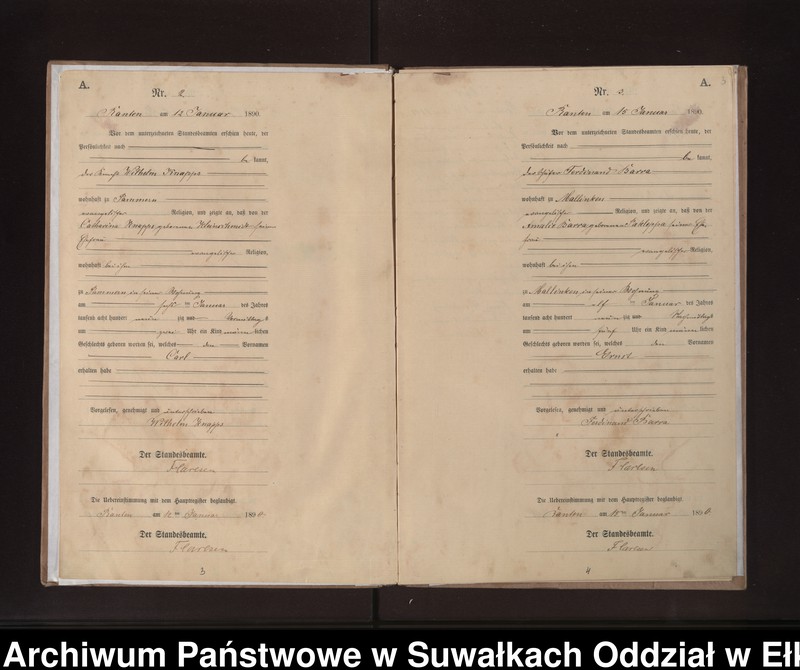 A.
Nr. 2
Kanten am 12 Januar 1890.
Vor dem unterzeichneten Standesbeamten erschien heute, der
Persönlichkeit nach
be kannt,
Wilhelm Knapps
wohnhaft zu
evangelischer Religion, und zeigte an, daß von der
Catharina Knapps geborenen seiner
Ehefrau
evangelischer Religion,
wohnhaft bei ihm
zu in seiner Wohnung
am ten Januar des Jahres
tausend acht hundert neun zig und Vormittags
um zwei Uhr ein Kind männlichen
Geschlechts geboren worden sei, welches den Vornamen
Carl
erhalten habe
Vorgelesen, genehmigt und unterschrieben
Wilhelm Knapps
Der Standesbeamte.
Die Uebereinstimmung mit dem Hauptregister beglaubigt.
Kanten am 12ten Januar 1890.
Der Standesbeamte.
3
A.
3
Nr. 3
Kanten am 15 Januar 1890.
Vor dem unterzeichneten Standesbeamten erschien heute, der
Persönlichkeit nach
be kannt,
Ferdinand Barra
wohnhaft zu Mallinken
evangelischer Religion, und zeigte an, daß von der
Amalie Barra geborenen seiner Ehe
frau
evangelischer Religion,
wohnhaft bei ihm
zu Mallinken in seiner Wohnung
am elf ten Januar des Jahres
tausend acht hundert neun zig und Nachmittags
um fünf Uhr ein Kind männlichen
Geschlechts geboren worden sei, welches den Vornamen
Ernst
erhalten habe
Vorgelesen, genehmigt und unterschrieben
Ferdinand Barra
Der Standesbeamte.
Die Uebereinstimmung mit dem Hauptregister beglaubigt.
Kanten am 15ten Januar 1890.
Der Standesbeamte.
4
Archiwum Państwowe w Suwałkach Oddział w Eł